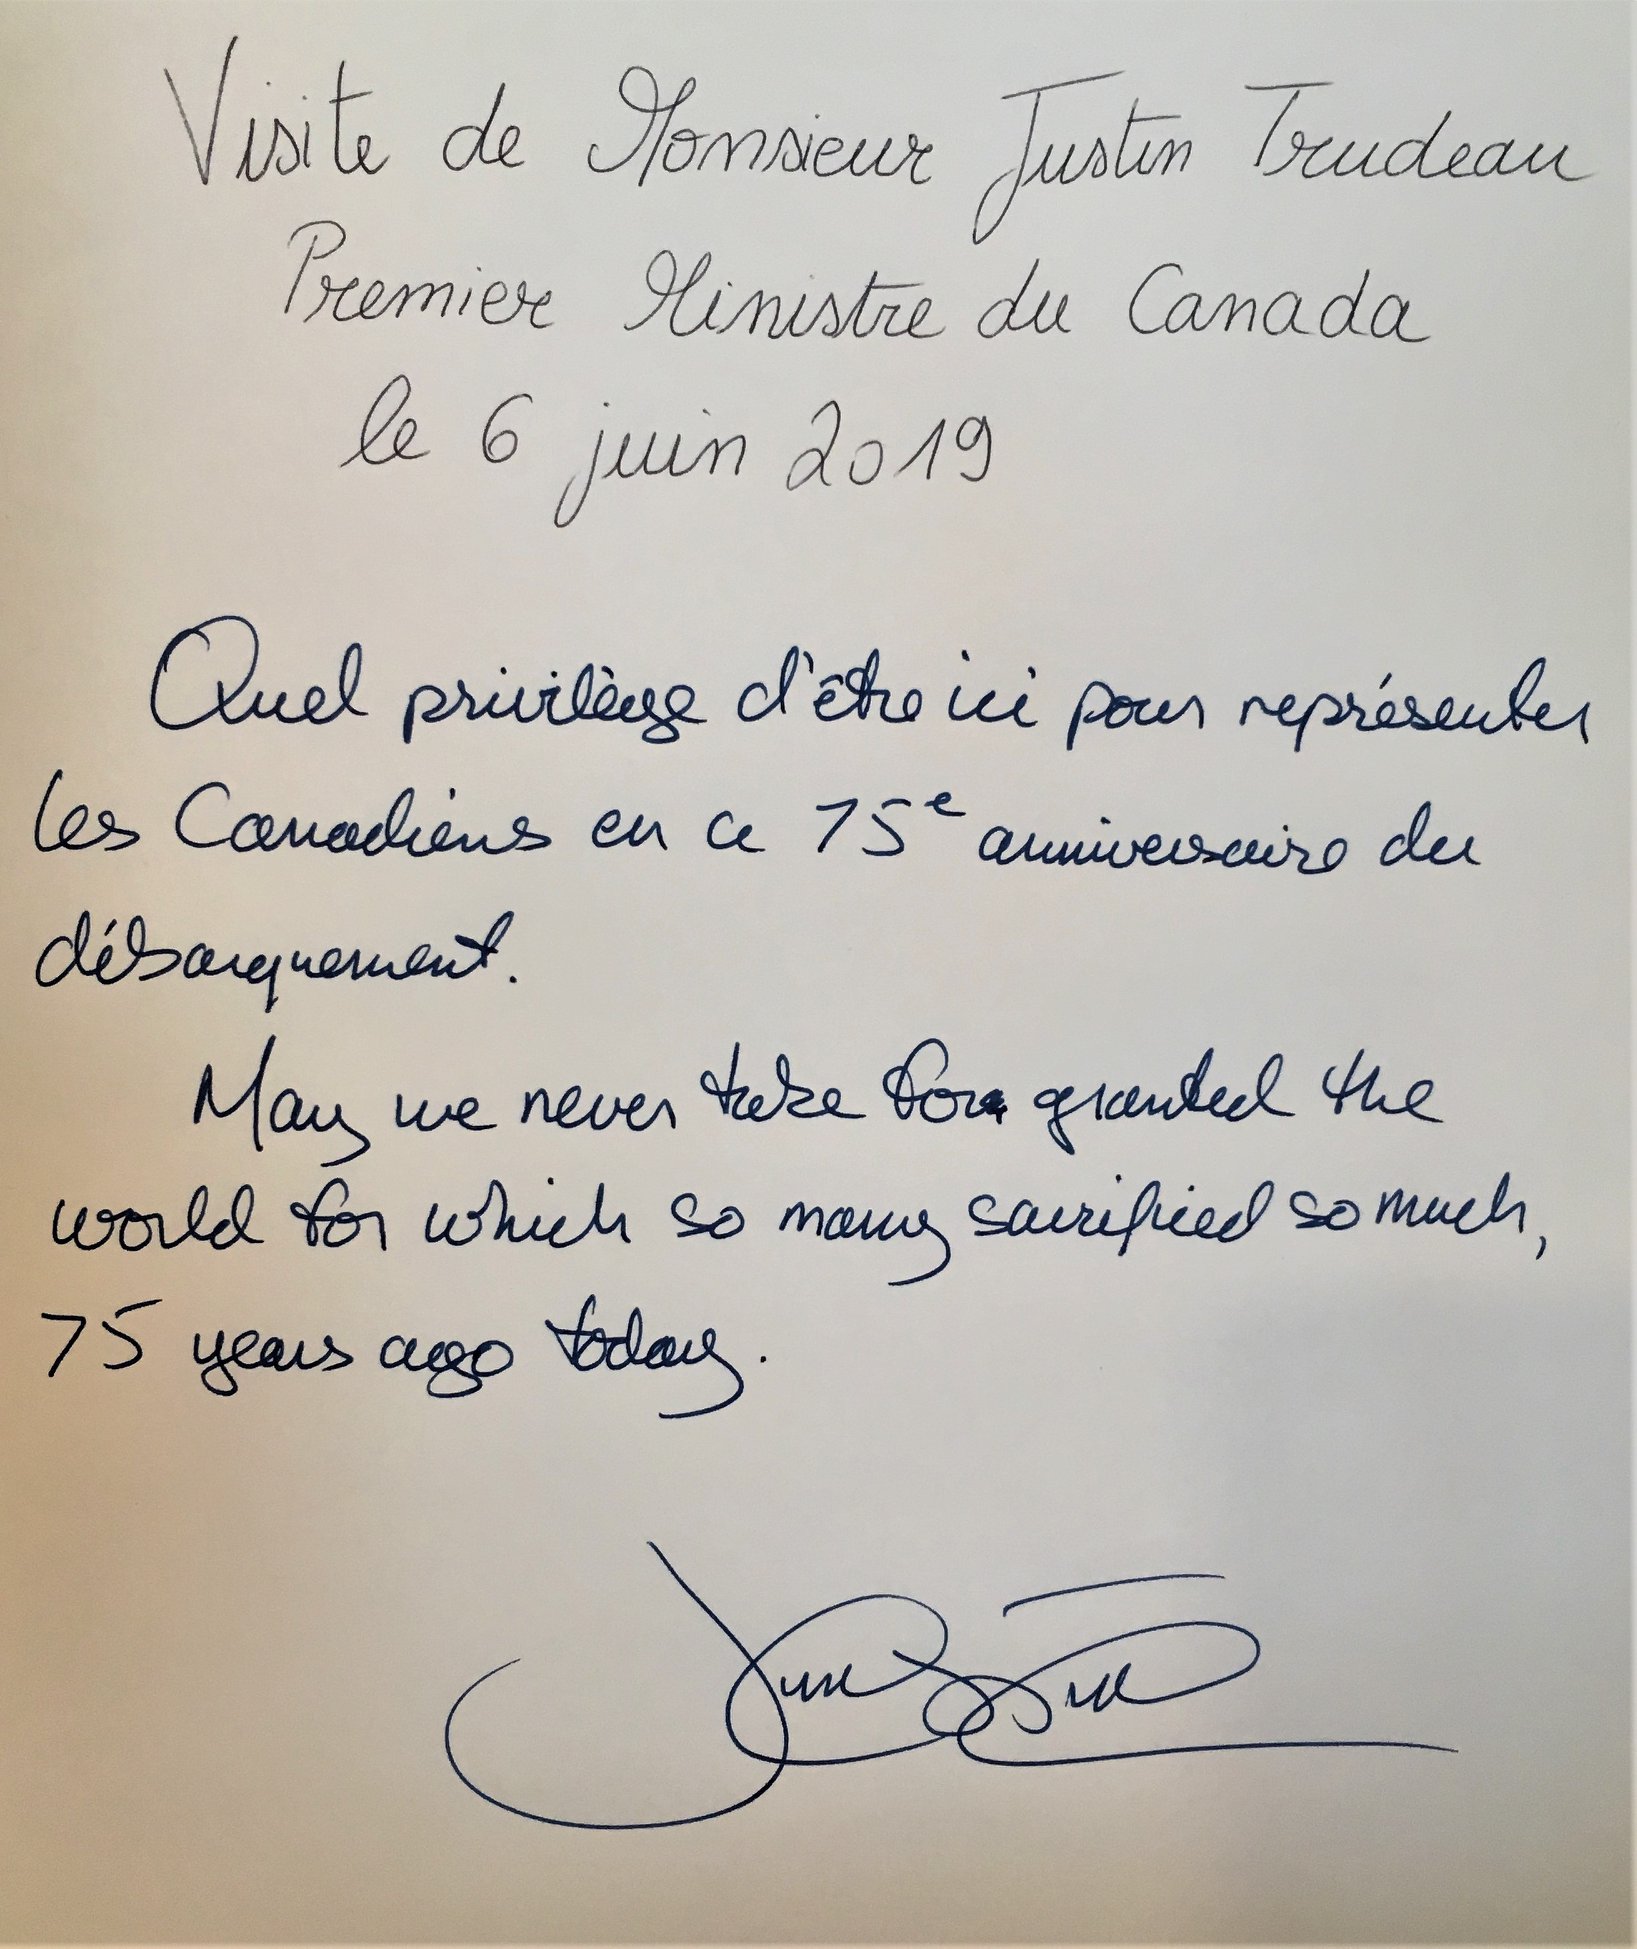 Visite de Monsieur Justin Trudeau
Premier Ministre du Canada
le 6 juin 2019
Quel privilège d'être ici pour représenter
les Canadiens en ce 75e anniversaire du
débarquement.
May we never take for granted the
world for which so many sacrificed so much,
75 years ago today.